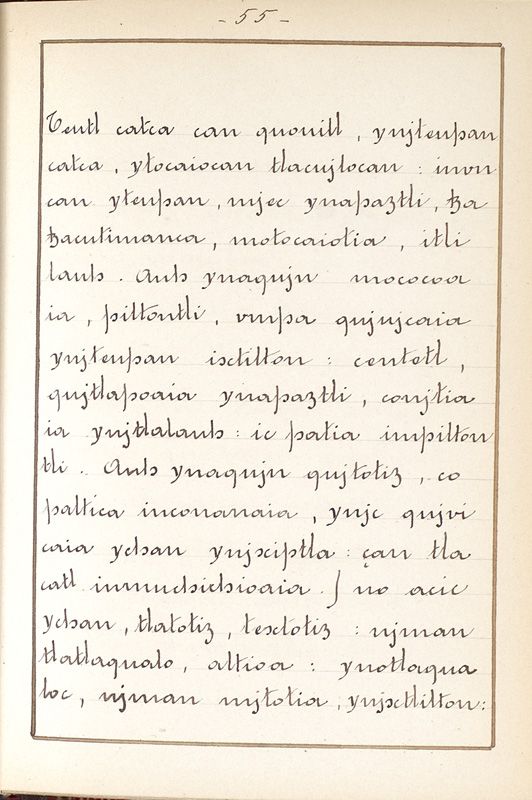 - 55 -
Tentl catca can quouitl, ynjteupan
catca, ytocaiocan tlacujlocan: invn
can yteupan, mjec ynapaztli, tza
tzacutimanca, motocaiotia, itli
lauh. Auh ynaqujn mococoa
ia, piltontli, vmpa qujujcaia
ynjteupan ixtlilton: centetl,
qujtlapoaia ynapaztli, conjtia
ia ynjtlalauh: ic patia inpilton
tli. Auh ynaqujn qujtotiz, co
paltica inconanaia, ynjc qujvi
caia ychan ynjxiptla: çan tla
catl inmuchichioaia. / no acic
ychan, tlatotiz, texotiz: njman
tlatlaqualo, altioa: ynotlaqua
loc, njman mjtotia, ynjxtlilton: